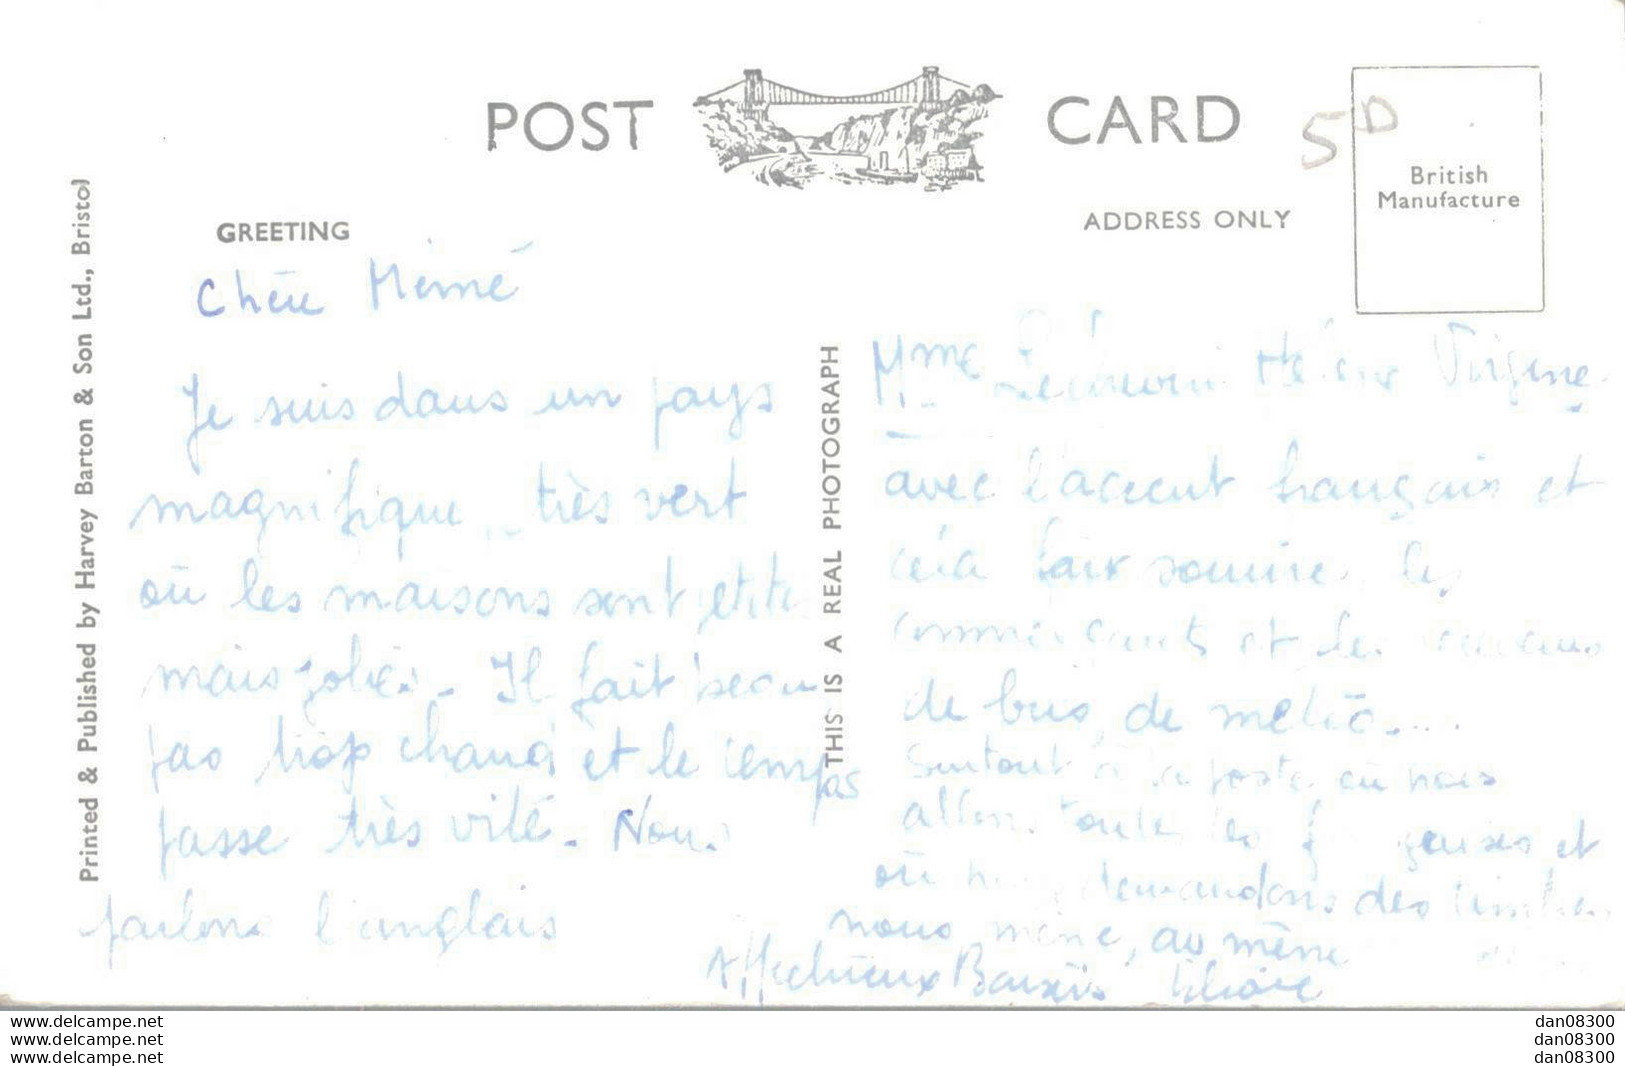 POST CARD
5D
British
Manufacture
GREETING
ADDRESS ONLY
Printed & Published by Harvey Barton & Son Ltd., Bristol
THIS IS A REAL PHOTOGRAPH
Chère Mémé
Je suis dans un pays
magnifique très vert
où les maisons sont petites
mais jolies. Il fait beau
pas trop chaud et le temps
passe très vite. Nous
parlons l'anglais
Mme
avec l'accent français et
cela fait sourire les
commerçants et les
de bus, de métro....
Surtout à la poste où nous
allons toutes les françaises et
où nous demandons des timbres
nous même, au même
Affectueux Baisers
www.delcampe.net
www.delcampe.net
www.delcampe.net
dan08300
dan08300
dan08300